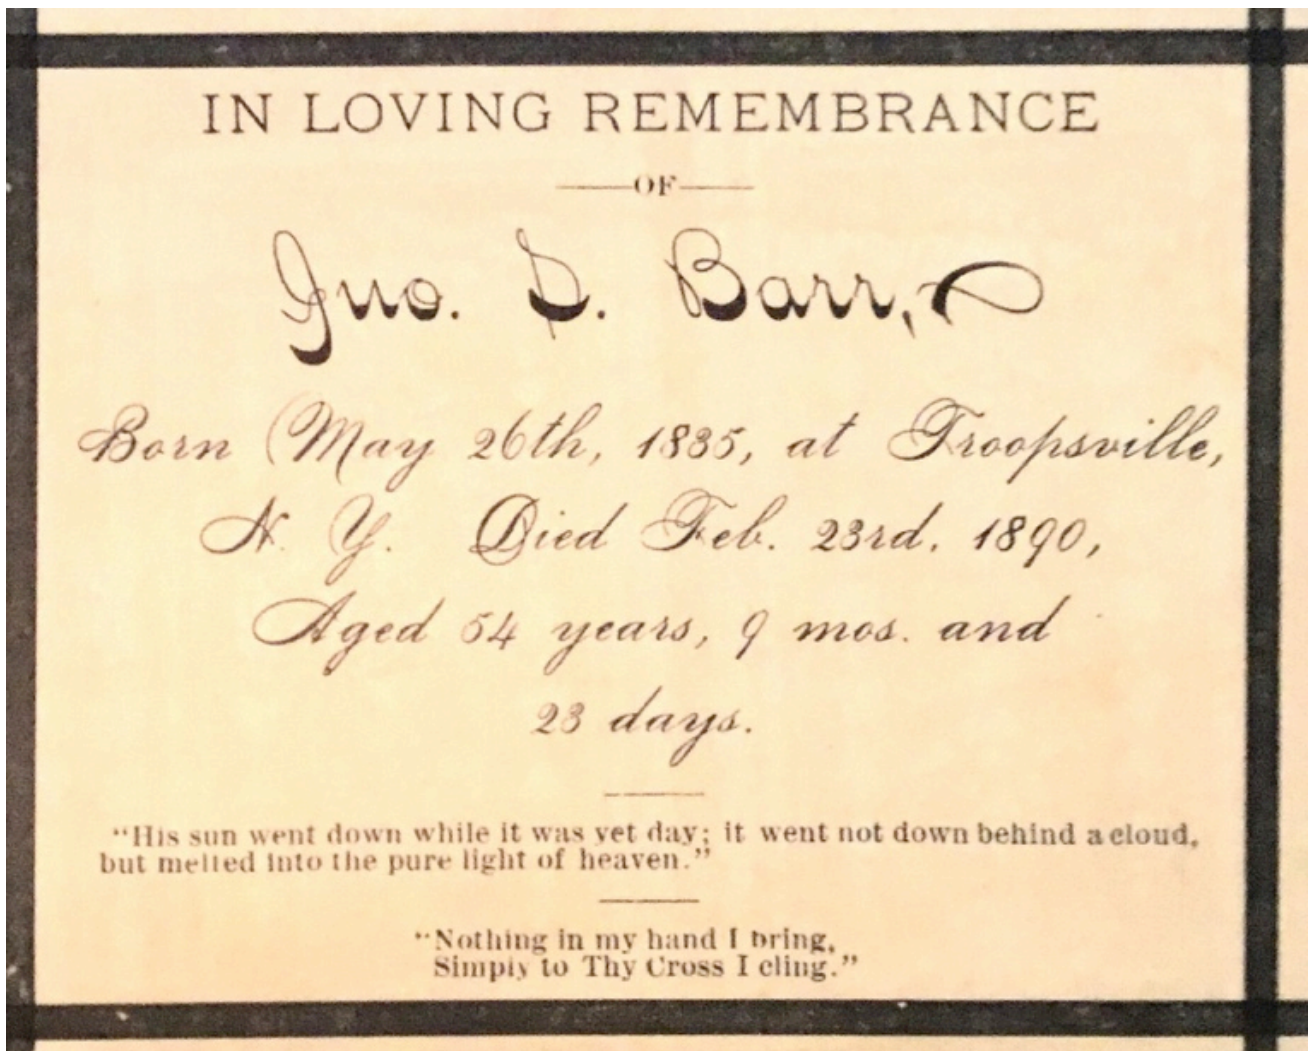 IN LOVING REMEMBRANCE
OF
Jno. S. Barr,
Born May 26th, 1835, at Troopsville,
N. Y. Died Feb. 23rd. 1890,
Aged 54 years, 9 mos. and
23 days.
"His sun went down while it was yet day; it went not down behind a cloud,
but melted into the pure light of heaven."
"Nothing in my hand I bring,
Simply to Thy Cross I cling."